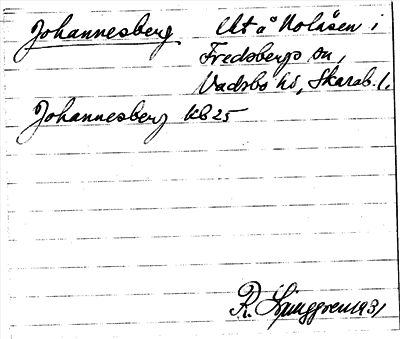 Johannesberg Ut å Nolåsen i
Fredsbergs sn,
Vadsbo hd, Skarab. l.
Johannesberg Kb 25
R. Ljunggren 1931